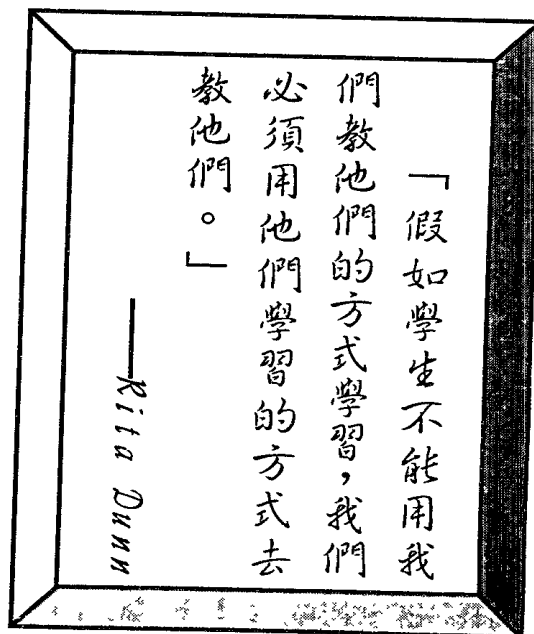 「假如學生不能用我
們教他們的方式學習，我們
必須用他們學習的方式去
教他們。」
——Rita Dunn